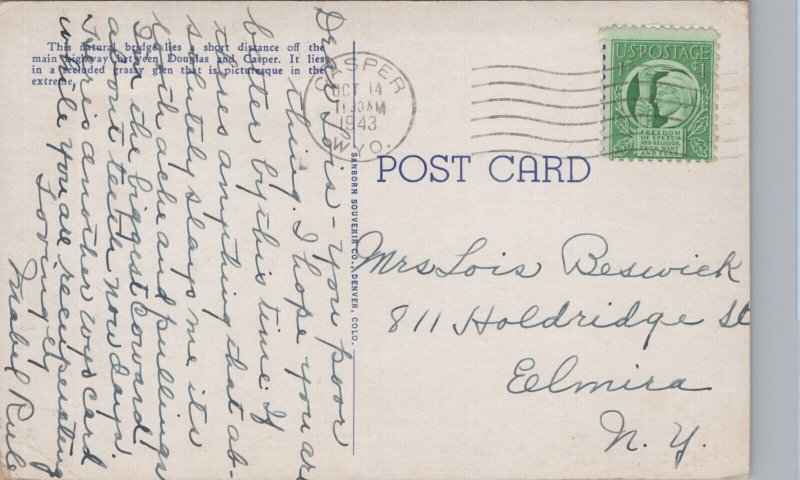 This natural bridge lies a short distance off the
main highway between Douglas and Casper. It lies
in a secluded grassy glen that is picturesque in the
extreme.
CASPER
OCT 14
11 30 AM
1943
WYO.
U.S. POSTAGE
1¢ ¢1
FREEDOM
OF SPEECH
AND RELIGION,
FROM WANT
AND FEAR
POST CARD
SANBORN SOUVENIR CO., DENVER, COLO.
Dear Lois - You poor
thing. I hope you are
better by this time. If
theres anything that ab-
solutely slays me its
tooth ache and pullings
I'm the biggest coward
about teeth now days.
Here is another wyo card
while you are recuperating
Lovingly
Mabel Rule
Mrs Lois Beswick
811 Holdridge St
Eelmira
N. Y.